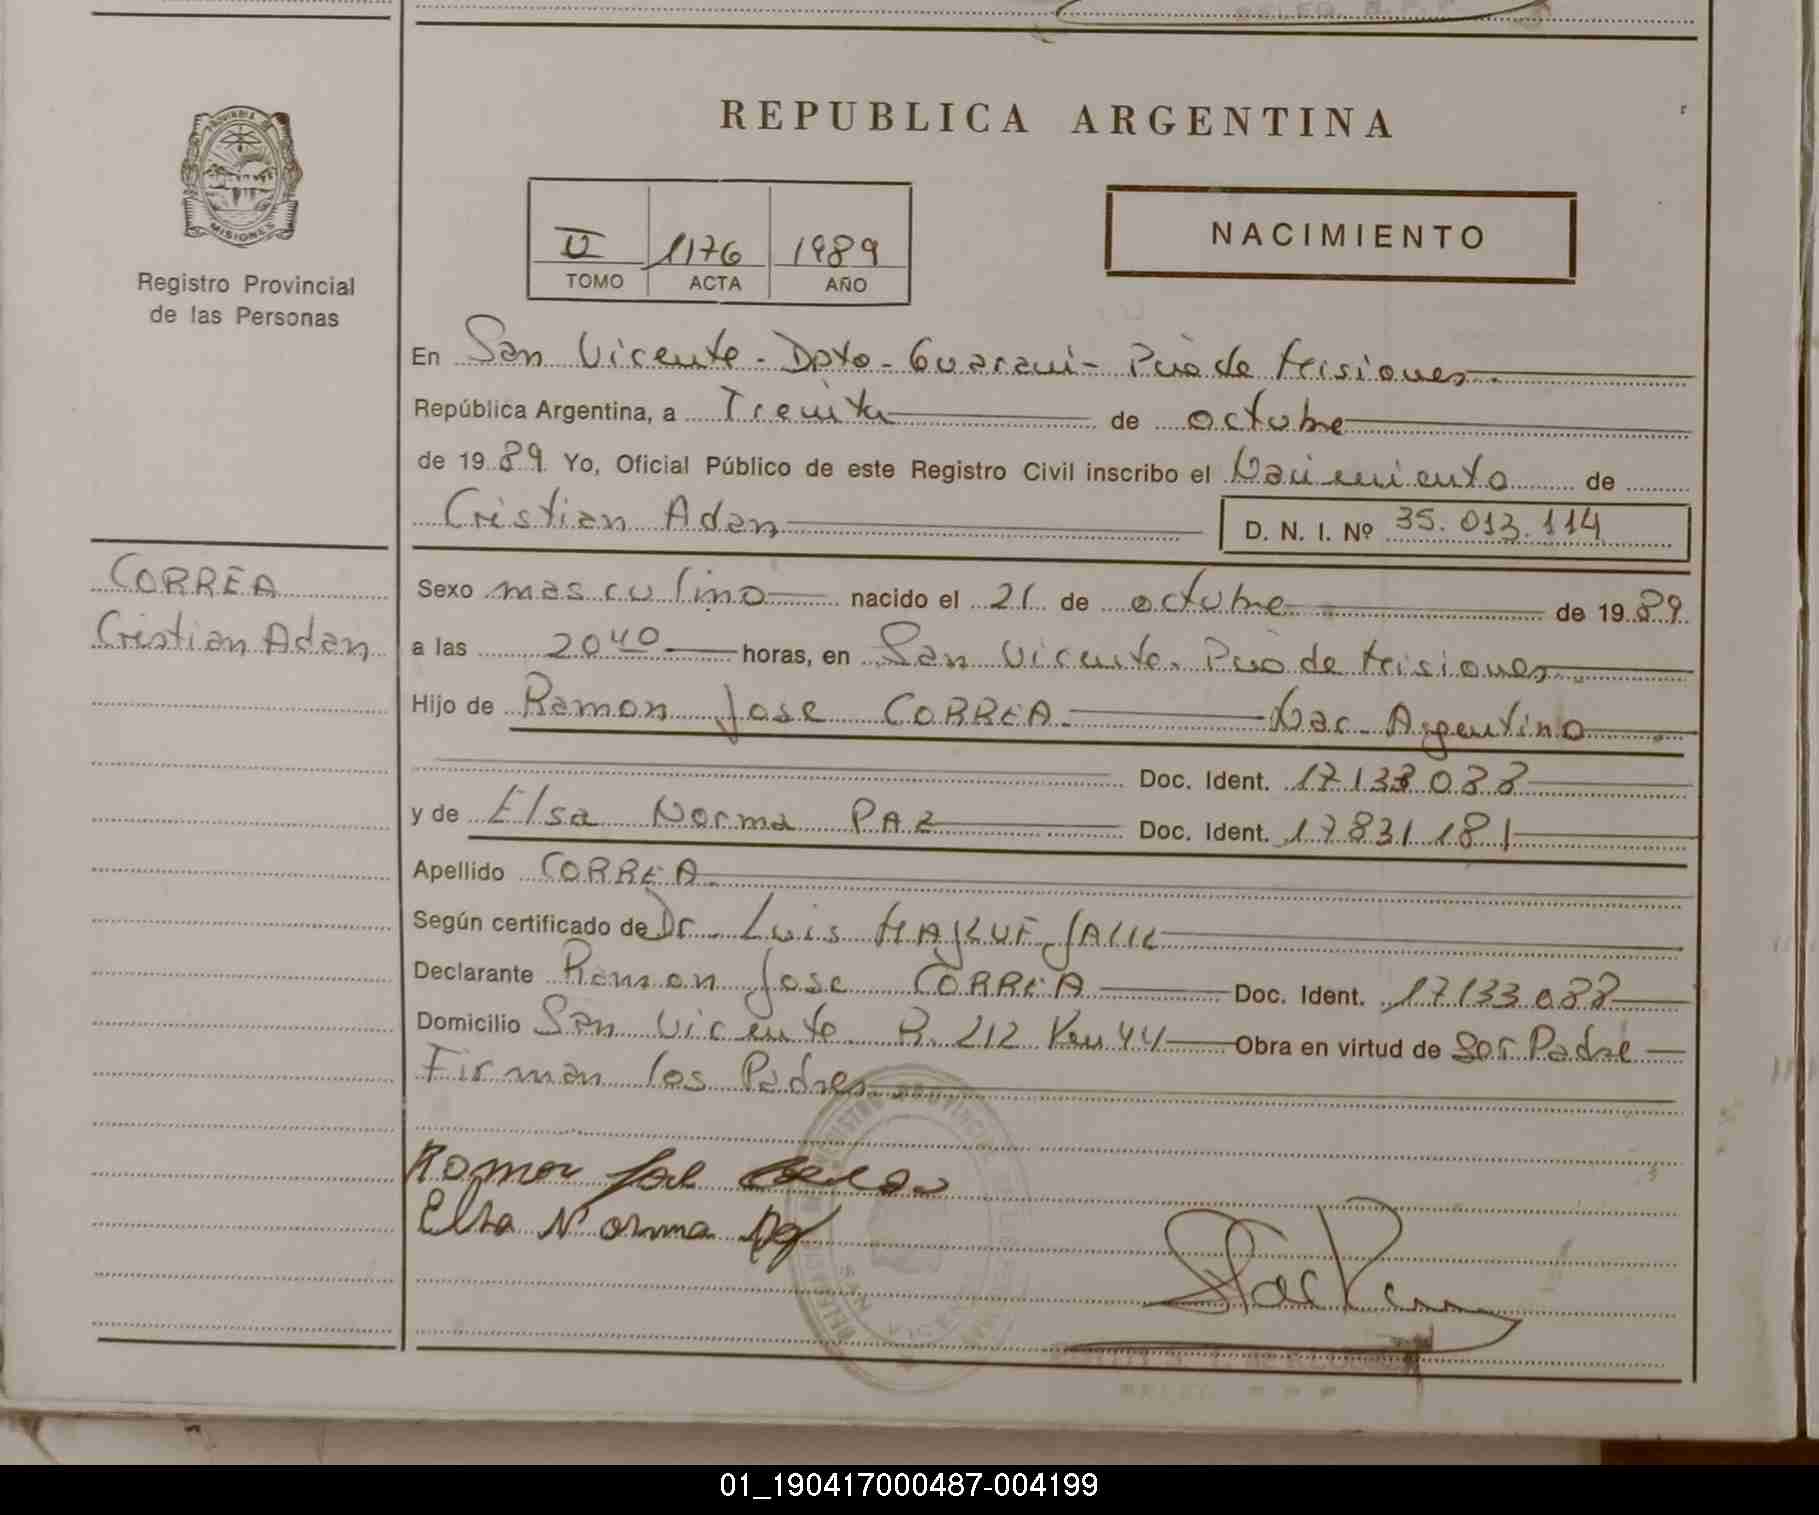 REPUBLICA ARGENTINA
PROVINCIA DE
MISIONES
Registro Provincial
de las Personas
II 1176 1989
TOMO ACTA AÑO
NACIMIENTO
En San Vicente - Dpto - Guarani - Pcia de Misiones
República Argentina, a Treinta de octubre
de 1989 Yo, Oficial Público de este Registro Civil inscribo el Nacimiento de
Cristian Adan D. N. I. Nº 35.013.114
CORREA
Cristian Adan
Sexo masculino nacido el 21 de octubre de 1989
a las 20 40 horas, en San Vicente. Pcia de Misiones
Hijo de Ramon Jose CORREA Nac. Argentino
Doc. Ident. 17133088
y de Elsa Norma PAZ Doc. Ident. 17831181
Apellido CORREA
Según certificado de Dr. Luis
Declarante Ramon Jose CORREA Doc. Ident. 17133088
Domicilio San Vicente R. 212 Km 44 Obra en virtud de Ser Padre
Firman los Padres
Ramon Jose Correa
Elsa Norma Paz
SAN VICENTE
01_190417000487-004199